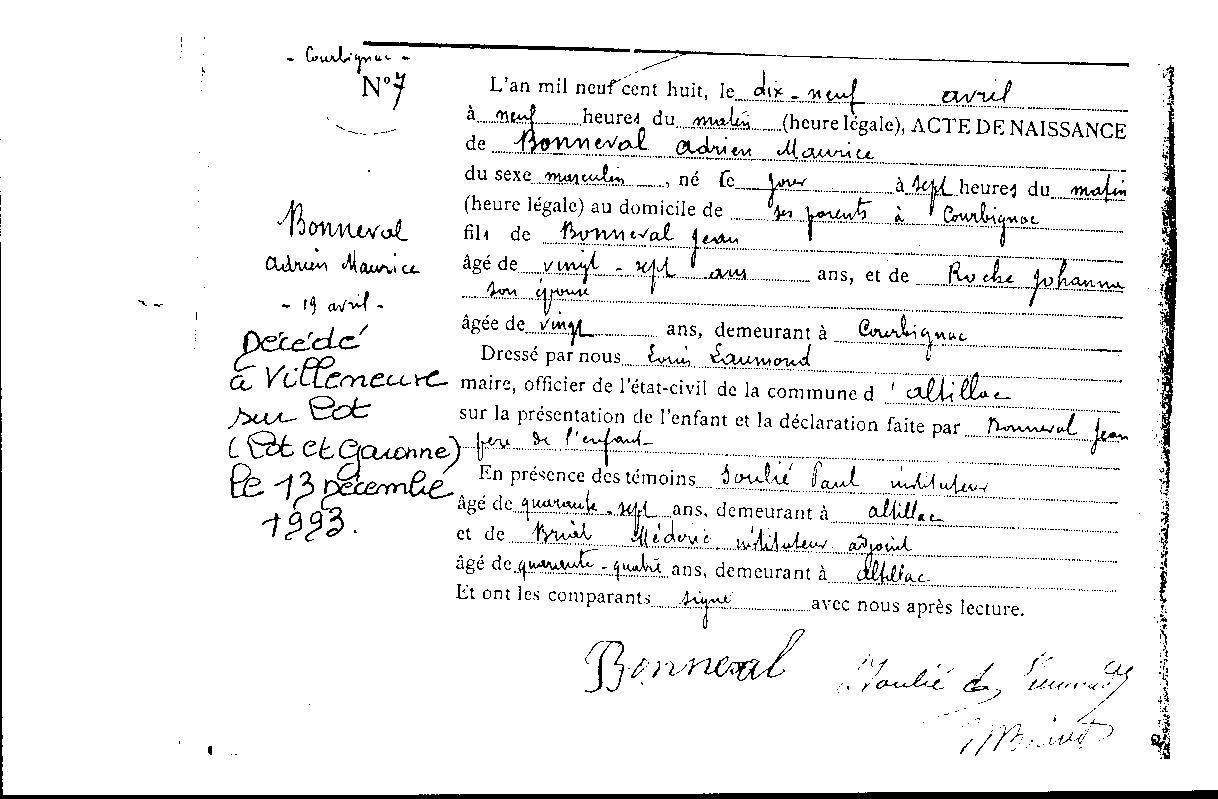 - Courbignac -
N° 7
Bonneval
Adrien Maurice
- 19 avril -
Décédé
à Villeneuve
sur Lot
(Lot et Garonne)
le 13 Décembre
1993.
L'an mil neuf cent huit, le dix-neuf avril
à neuf heures du matin (heure légale), ACTE DE NAISSANCE
de Bonneval Adrien Maurice
du sexe masculin, né ce jour à sept heures du matin
(heure légale) au domicile de ses parents à Courbignac
fils de Bonneval Jean
âgé de vingt-sept ans ans, et de Roche Johanna
son épouse
âgée de vingt ans, demeurant à Courbignac
Dressé par nous Louis Laumond
maire, officier de l'état-civil de la commune d'altillac
sur la présentation de l'enfant et la déclaration faite par Bonneval Jean
père de l'enfant
En présence des témoins Soulié Paul instituteur
âgé de quarante-sept ans, demeurant à altillac
et de Médéric instituteur adjoint
âgé de quarante-quatre ans, demeurant à altillac
Et ont les comparants signé avec nous après lecture.
Bonneval
Soulié